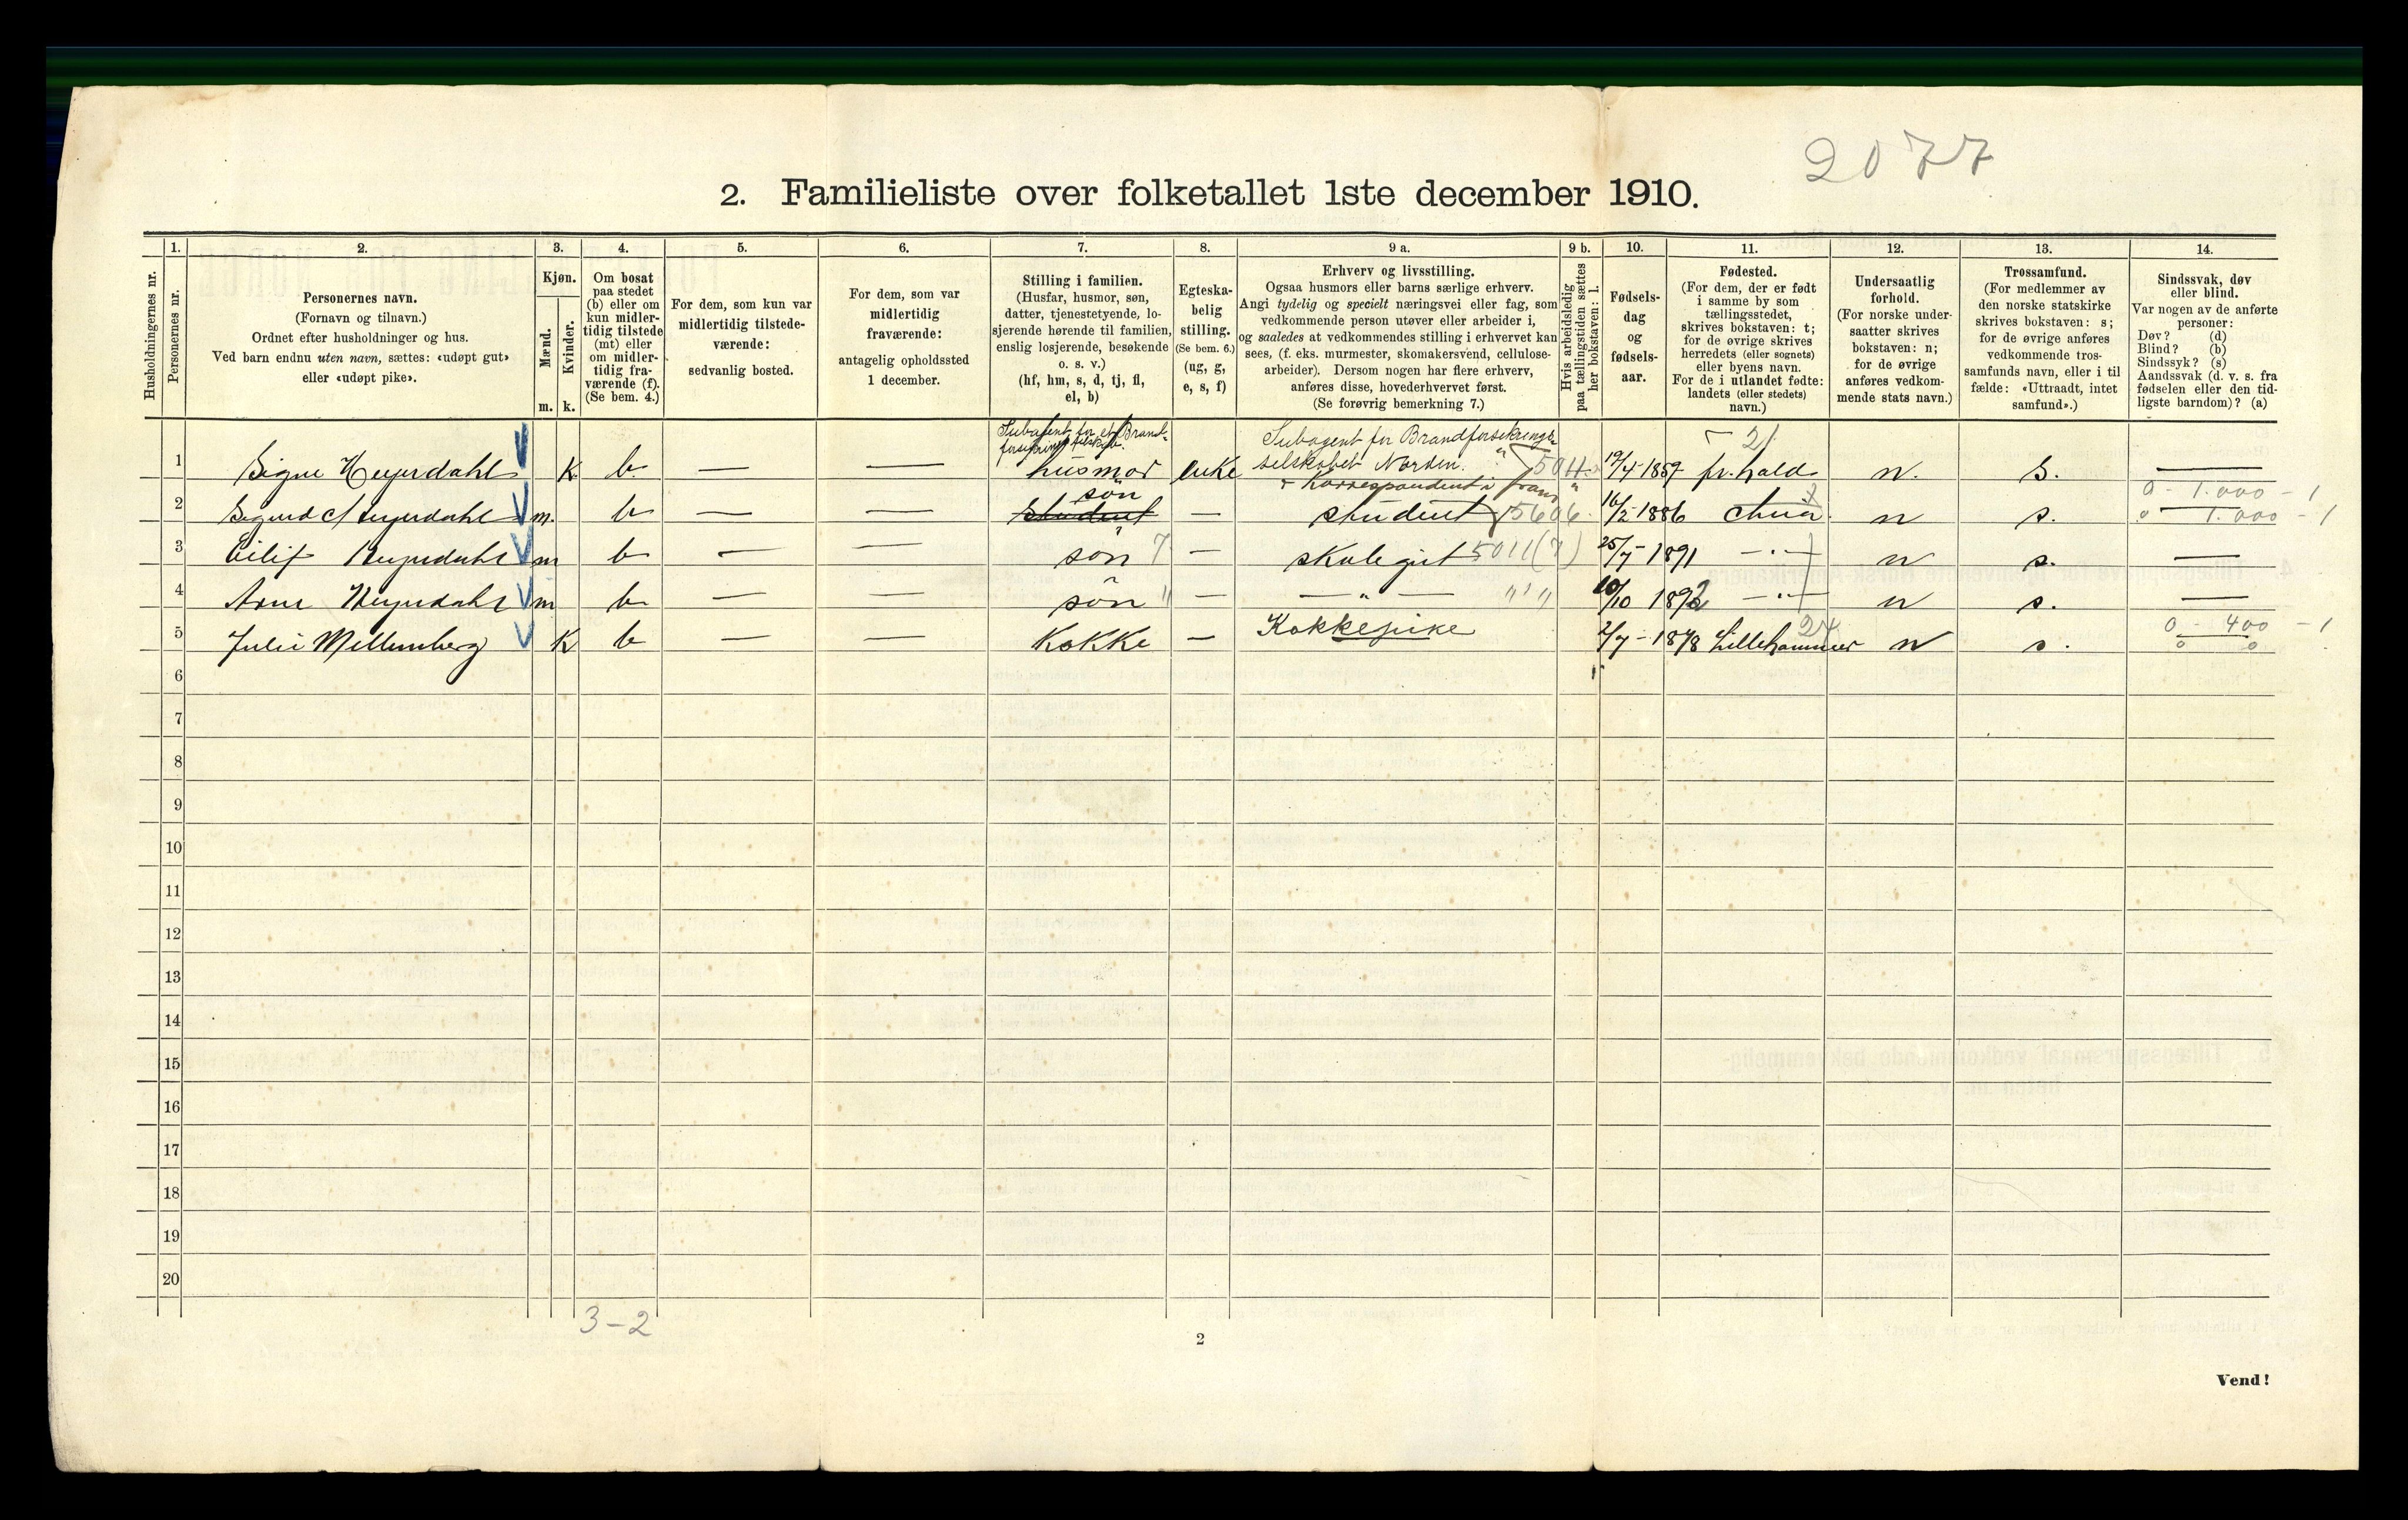 2077
2. Familieliste over folketallet 1ste december 1910.
Husholdningernes nr.
1.
Personernes nr.
2.
Personernes navn.
(Fornavn og tilnavn.)
Ordnet efter husholdninger og hus.
Ved barn endnu uten navn, sættes: «udøpt gut»
eller «udøpt pike».
3.
Kjøn.
Mænd.
Kvinder.
m. k.
4.
Om bosat
paa stedet
(b) eller om
kun midler-
tidig tilstede
(mt) eller
om midler-
tidig fra-
værende (f).
(Se bem. 4.)
5.
For dem, som kun var
midlertidig tilstede-
værende:
sedvanlig bosted.
6.
For dem, som var
midlertidig
fraværende:
antagelig opholdssted
1 december.
7.
Stilling i familien.
(Husfar, husmor, søn,
datter, tjenestetyende, lo-
sjerende hørende til familien,
enslig losjerende, besøkende
o. s. v.)
(hf, hm, s, d, tj, fl,
el, b)
8.
Egteska-
belig
stilling.
(Se bem. 6.)
(ug, g,
e, s, f)
9 a.
Erhverv og livsstilling.
Ogsaa husmors eller barns særlige erhverv.
Angi tydelig og specielt næringsvei eller fag, som
vedkommende person utøver eller arbeider i,
og saaledes at vedkommendes stilling i erhvervet kan
sees, (f. eks. murmester, skomakersvend, cellulose-
arbeider). Dersom nogen har flere erhverv,
anføres disse, hovederhvervet først.
(Se forøvrig bemerkning 7.)
9 b.
Hvis arbeidsledig
paa tællingstiden sættes
her bokstaven: l.
10.
Fødsels-
dag
og
fødsels-
aar.
11.
Fødested.
(For dem, der er født
i samme by som
tællingsstedet,
skrives bokstaven: t;
for de øvrige skrives
herredets (eller sognets)
eller byens navn.
For de i utlandet fødte:
landets (eller stedets)
navn.)
12.
Undersaatlig
forhold.
(For norske under-
saatter skrives
bokstaven: n;
for de øvrige
anføres vedkom-
mende stats navn.)
13.
Trossamfund.
(For medlemmer av
den norske statskirke
skrives bokstaven: s;
for de øvrige anføres
vedkommende tros-
samfunds navn, eller i til
fælde: «Uttraadt, intet
samfund».)
14.
Sindssvak, døv
eller blind.
Var nogen av de anførte
personer:
Døv? (d)
Blind? (b)
Sindssyk? (s)
Aandssvak (d. v. s. fra
fødselen eller den tid-
ligste barndom)? (a)
Subagent for et Brand-
Subagent for Brandforsikrings- 21
1 Signe Heyerdahl k b. — — husmor enke selskabet Norden. 5011 19/4-1859 fr.hald n. s. —
søn + Korrespondent i 0 - 1.000 - 1
2 Sigurd Heyerdahl m. b — — student — student 5606 16/2-1886 Chria. n s. 0 1.000 - 1
3 Eilif Heyerdahl m b — — søn 7 — skolegut 5011(7) 25/7-1891 —"— n s. —
4 Arne Heyerdahl m b — — søn " — —"— " ' " 10/10 1892 —"— n s. —
24 0 - 400 - 1
5 Julie Mellemberg k b — — Kokke — Kokkepike 2/7-1878 Lillehammer n s. 0 0
6
7
8
9
10
11
12
13
14
15
16
17
18
19
20
3-2
2
Vend!